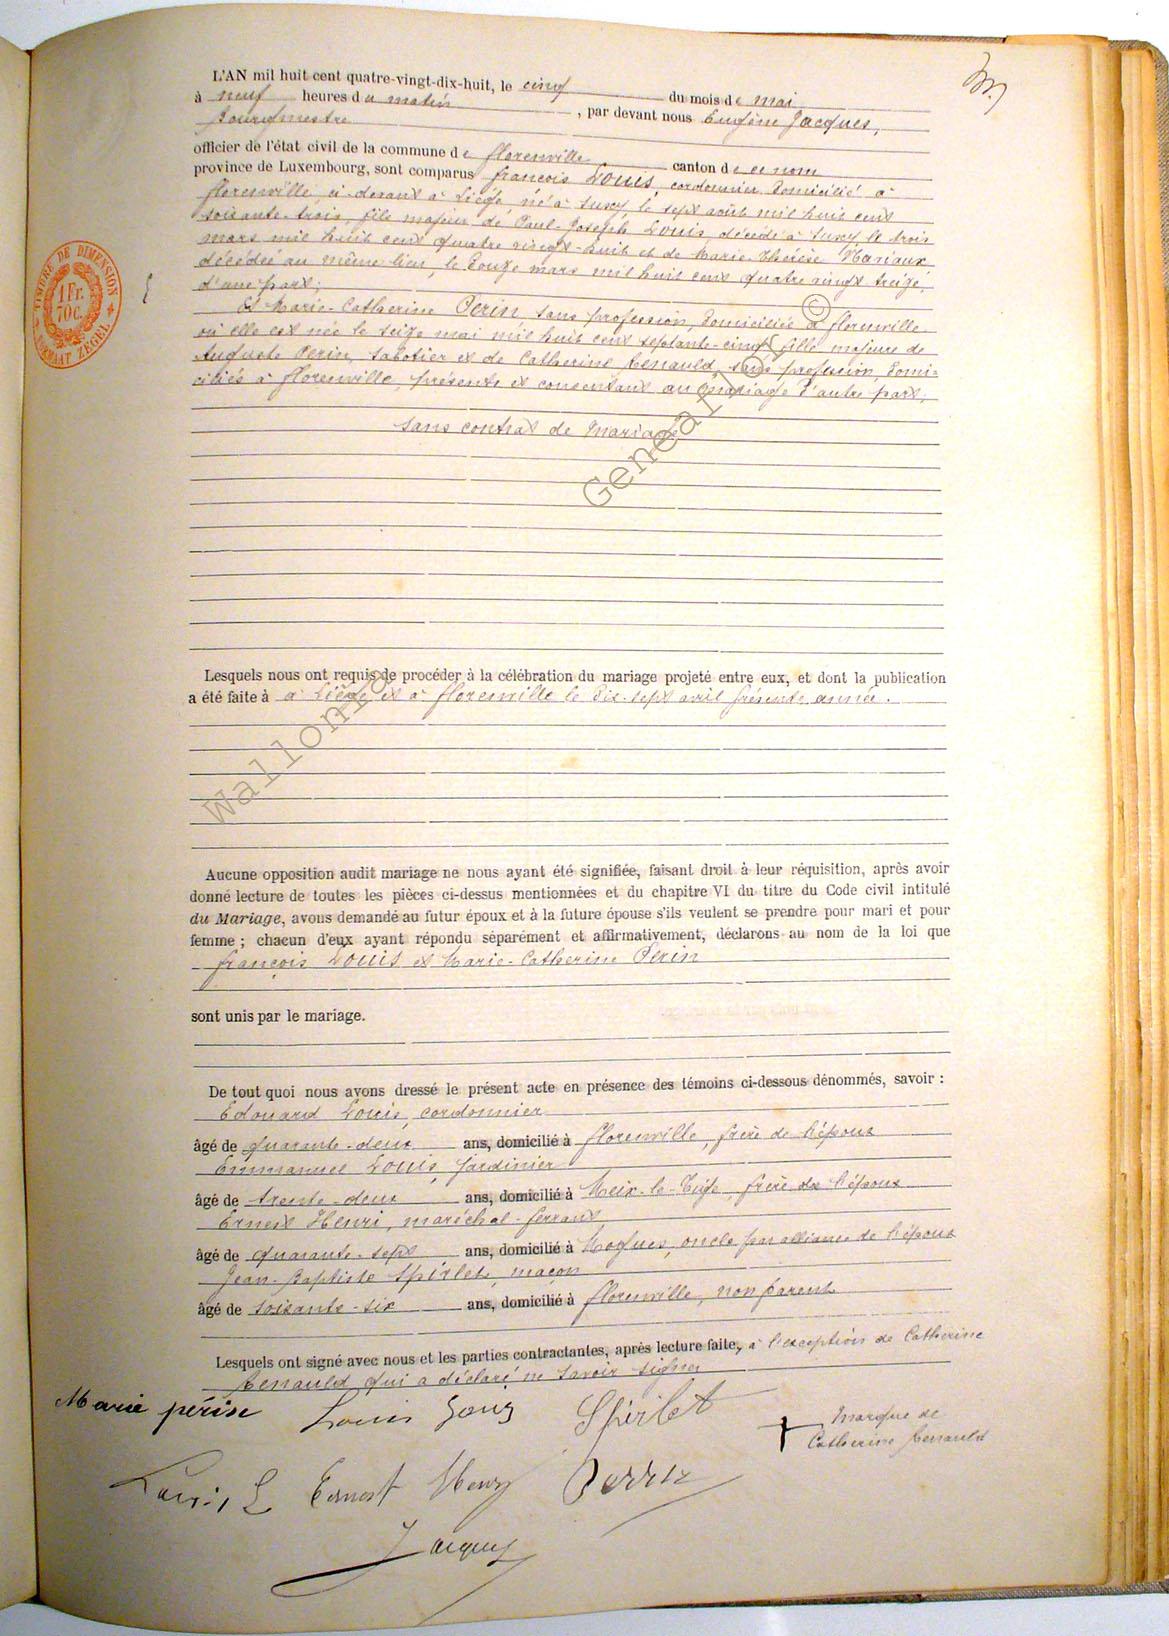 L'AN mil huit cent quatre-vingt-dix-huit, le cinq du mois de mai
à neuf heures du matin, par devant nous Eugène Jacques,
Bourgmestre
officier de l'état civil de la commune de Florenville canton de ce nom
province de Luxembourg, sont comparus François Louis, cordonnier domicilié à
Florenville, ci-devant à Liége né à Suxy, le sept août mil huit cent
soixante-trois, fils majeur de Paul-Joseph Louis décédé à Suxy, le trois
mars mil huit cent quatre vingt-huit et de Marie-Thérèse Mariaux
décédée au même lieu, le douze mars mil huit cent quatre vingt treize,
d'une part;
Et Marie-Catherine Perin, sans profession, domiciliée à Florenville
où elle est née le seize mai mil huit cent septante-cinq, fille majeure de
Auguste Perin, sabotier et de Catherine Renauld, sans profession, domi-
ciliés à Florenville, présents et consentant au mariage d'autre part;
Sans contrat de Mariage
Lesquels nous ont requis de procéder à la célébration du mariage projeté entre eux, et dont la publication
a été faite à à Liége et à Florenville le dix-sept avril présente année.
Aucune opposition audit mariage ne nous ayant été signifiée, faisant droit à leur réquisition, après avoir
donné lecture de toutes les pièces ci-dessus mentionnées et du chapitre VI du titre du Code civil intitulé
du Mariage, avons demandé au futur époux et à la future épouse s'ils veulent se prendre pour mari et pour
femme ; chacun d'eux ayant répondu séparément et affirmativement, déclarons au nom de la loi que
François Louis et Marie-Catherine Perin
sont unis par le mariage.
De tout quoi nous avons dressé le présent acte en présence des témoins ci-dessous dénommés, savoir :
Edouard Louis, cordonnier
âgé de quarante-deux ans, domicilié à Florenville, frère de l'époux
Emmanuel Louis, jardinier
âgé de trente-deux ans, domicilié à Meix-le-Tige, frère de l'époux
Ernest Henri, maréchal-ferrant
âgé de quarante-sept ans, domicilié à Moyues, oncle par alliance de l'époux
Jean-Baptiste Spirlet, maçon
âgé de soixante-six ans, domicilié à Florenville, non parent
Lesquels ont signé avec nous et les parties contractantes, après lecture faite, à l'exception de Catherine
Renauld qui a déclaré ne savoir signer
Marie périn Louis Spirlet
Marque de
Catherine Renauld
Louis, E Ernest Henry Perrin
Jacques
TIMBRE DE DIMENSION
1 Fr.
70 c.
FORMAAT ZEGEL
Wallonia
Geneal
©